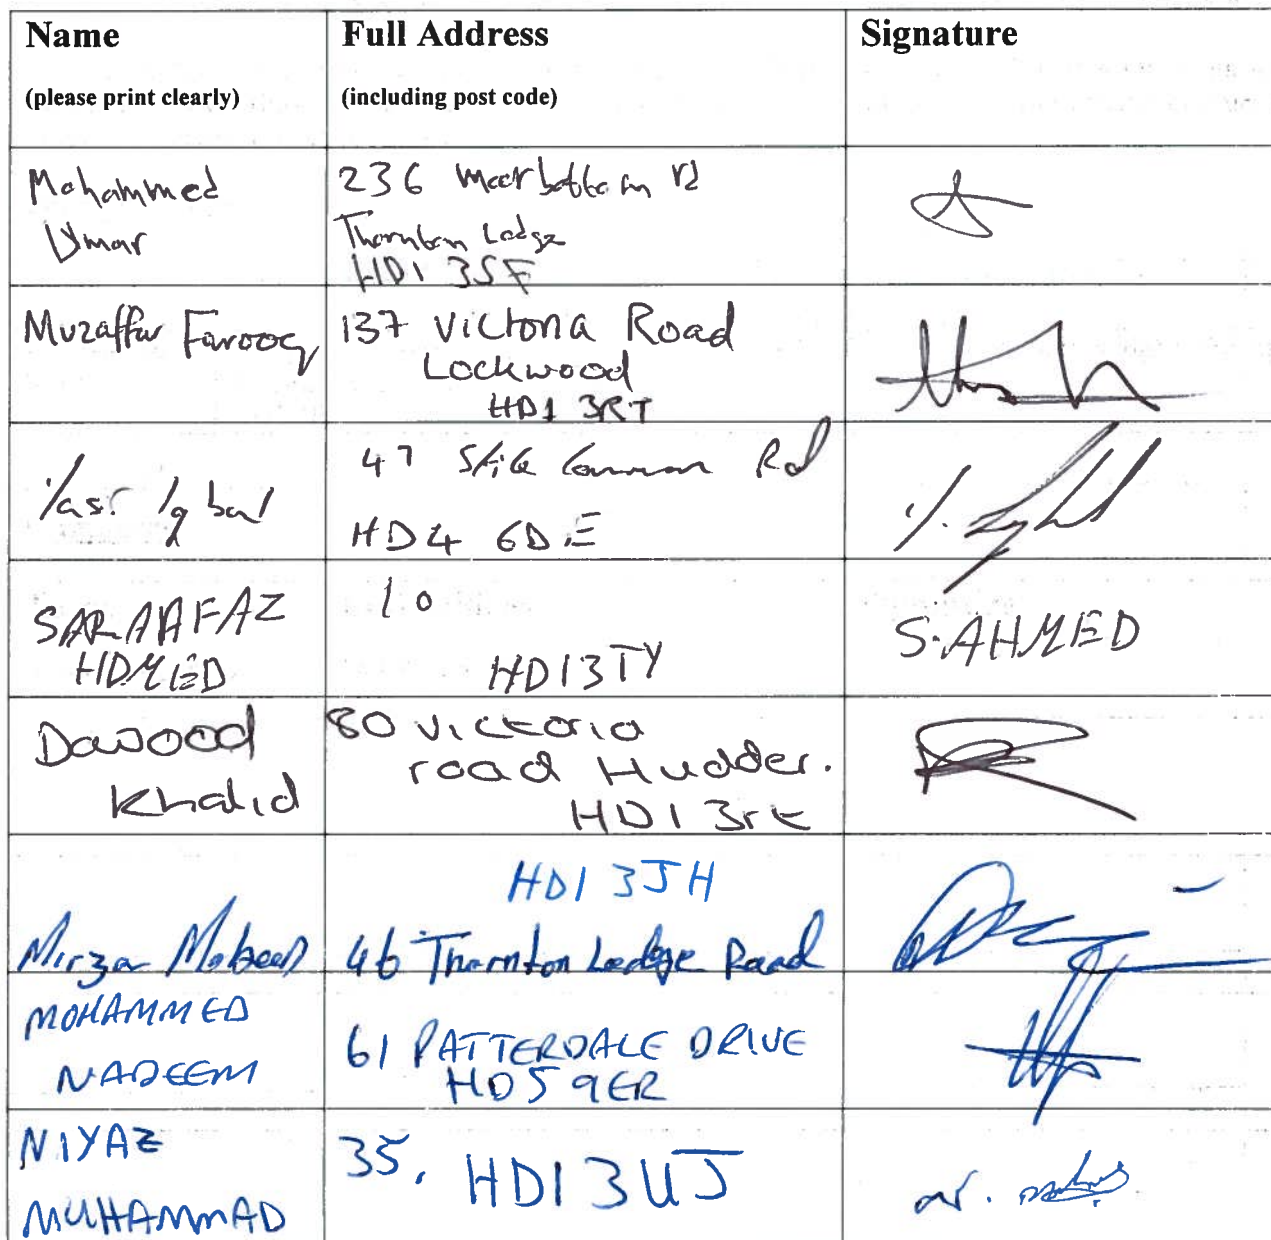 Name
Full Address
Signature
(please print clearly)
(including post code)
Mohammed
Umar
236 Moorbottom rd
Thornton Lodge
HD1 3SF
Muzaffar Farooq
137 Victoria Road
Lockwood
HD1 3RT
Yasir Iqbal
47 Common Rd
HD4 6DE
SARAAFAZ
HDMED
10
HD13TY
S.AHMED
Dawood
Khalid
80 victoria
road Hudder.
HD1 3rt
HD1 3JH
Mirza Mobeen
46 Thornton Lodge Road
MOHAMMED
NADEEM
61 PATTERDALE DRIVE
HD5 9ER
NIYAZ
MUHAMMAD
35, HD1 3UJ